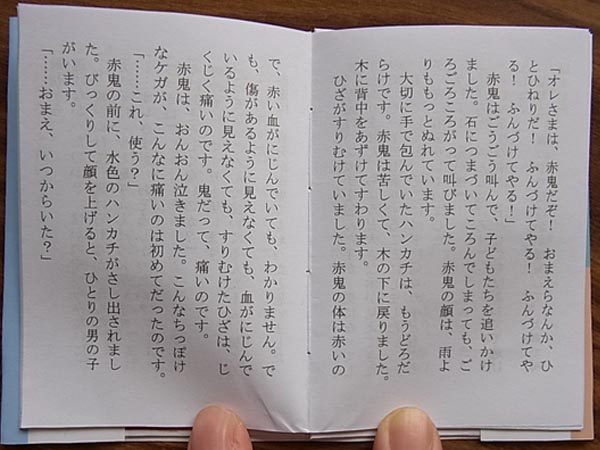 「オレさまは、赤鬼だぞ！　おまえらなんか、ひ
とひねりだ！　ふんづけてやる！　ふんづけてや
る！　ふんづけてやる！」
　赤鬼はごうごう叫んで、子どもたちを追いかけ
ました。石につまづいてころんでしまっても、ご
ろごろころがって叫びました。赤鬼の顔は、雨よ
りももっとぬれています。
　大切に手で包んでいたハンカチは、もうどろだ
らけです。赤鬼は苦しくて、木の下に戻りました。
木に背中をあずけてすわります。
　ひざがすりむけていました。赤鬼の体は赤いの
で、赤い血がにじんでいても、わかりません。で
も、傷があるように見えなくても、血がにじんで
いるように見えなくても、すりむけたひざは、じ
くじく痛いのです。鬼だって、痛いのです。
　赤鬼は、おんおん泣きました。こんなちっぽけ
なケガが、こんなに痛いのは初めてだったのです。
「……これ、使う？」
　赤鬼の前に、水色のハンカチがさし出されまし
た。びっくりして顔を上げると、ひとりの男の子
がいます。
「……おまえ、いつからいた？」